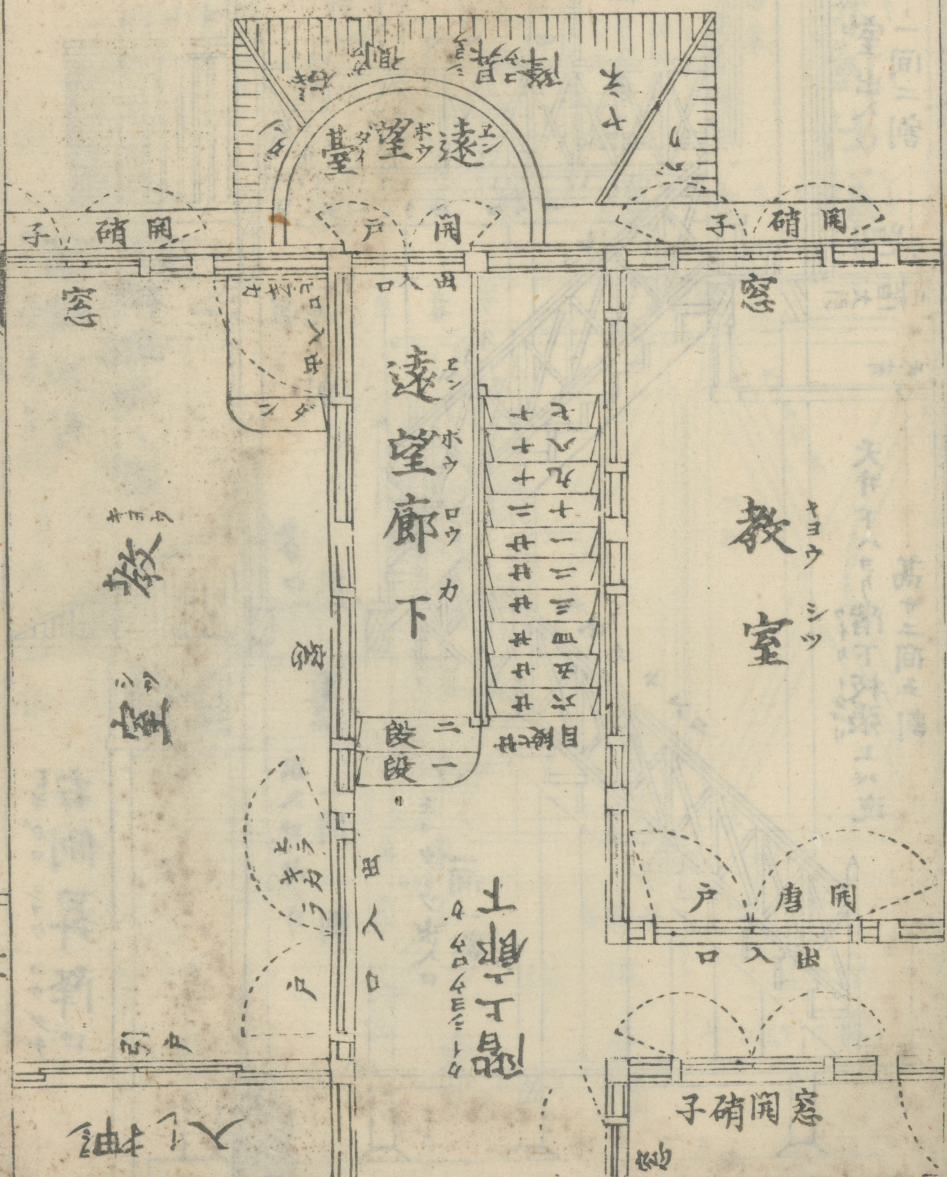 ヤネ
昇降口
遠望臺
エンボウダイ
開硝子
開戸
開硝子
窓
出入口
窓
出入口
ダン
遠望廊下
エンボウロウカ
十七
十八
十九
二十
廿一
廿二
廿三
廿四
廿五
廿六
廿七段目
二段
一段
教室
キョウシツ
窓
教室
キョウシツ
出入口
ヒラキカラ戸
開唐戸
出入口
階上廊下
カイショウロウカ
引戸
押入
窓開硝子
窓